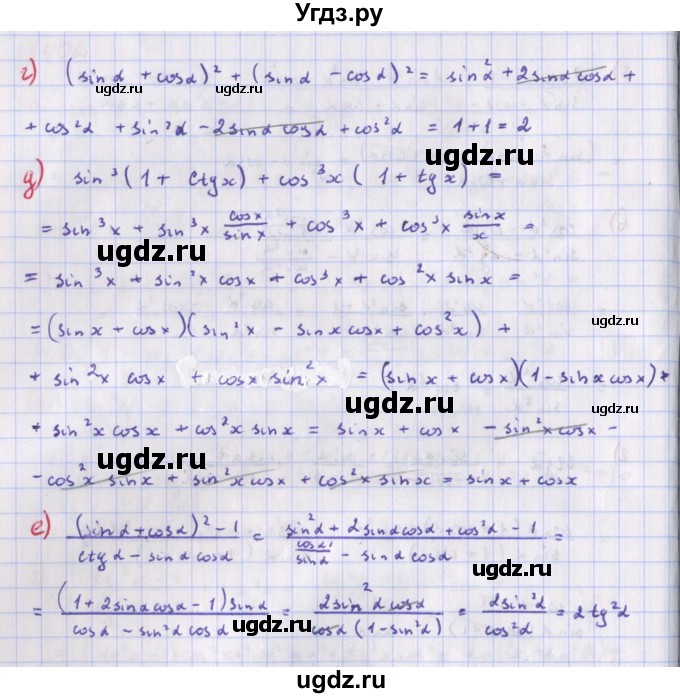 Угдз.ру
г) (sin α + cos α)² + (sin α - cos α)² = sin²α + 2sin α cos α +
+ cos²α + sin²α - 2sin α cos α + cos²α = 1+1 = 2
ugdz.ru
ugdz.ru
д) sin³(1 + ctg x) + cos³x (1 + tg x) =
= sin³x + sin³x cos x/sin x + cos³x + cos³x sin x/x =
ugdz.ru
= sin³x + sin²x cos x + cos³x + cos²x sin x =
ugdz.ru
= (sin x + cos x)(sin²x - sin x cos x + cos²x) +
+ sin²x cos x + cos x sin²x = (sin x + cos x)(1 - sin x cos x) +
ugdz.ru
+ sin²x cos x + cos²x sin x = sin x + cos x - sin²x cos x -
ugdz.ru
- cos²x sin x + sin²x cos x + cos²x sin x = sin x + cos x
е) (sin α + cos α)² - 1 / ctg α - sin α cos α = sin²α + 2sin α cos α + cos²α - 1 / cos α/sin α - sin α cos α =
ugdz.ru
= (1 + 2sin α cos α - 1) sin α / cos α - sin²α cos α = 2sin²α cos α / cos α (1 - sin²α) = 2sin²α / cos²α = 2tg²α
ugdz.ru
ugdz.ru